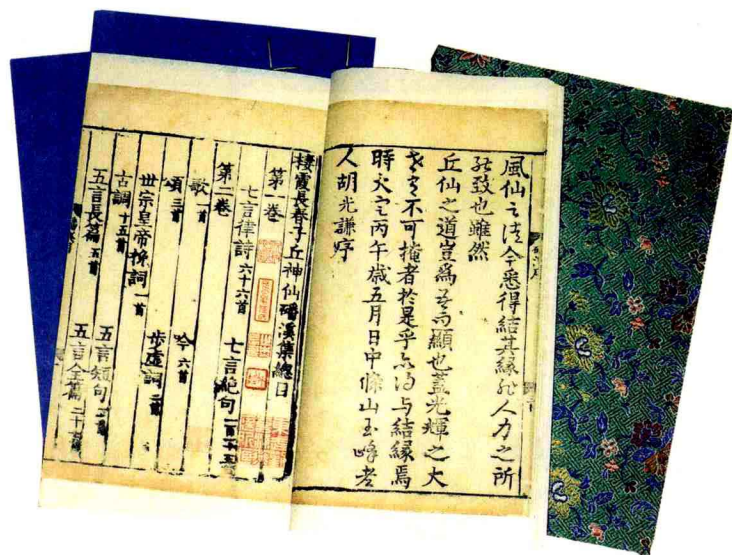 風仙之法今悉得結其縁非人力之所
能致也雖然
丘仙之道豈為吾而顯也蓋光輝之大
不可掩者於是乎亦得与結縁焉
時大定丙午歳五月日中條山玉峰老
人胡光謙序
棲霞長春子丘神仙磻溪集總目
第一巻
七言律詩六十六首 七言絶句
第二巻
歌一首 吟六首
頌三首 歩虚詞二首
世宗皇帝挽詞一首
古調十五首 五言短句
五言長篇五首 五言全篇二十五首